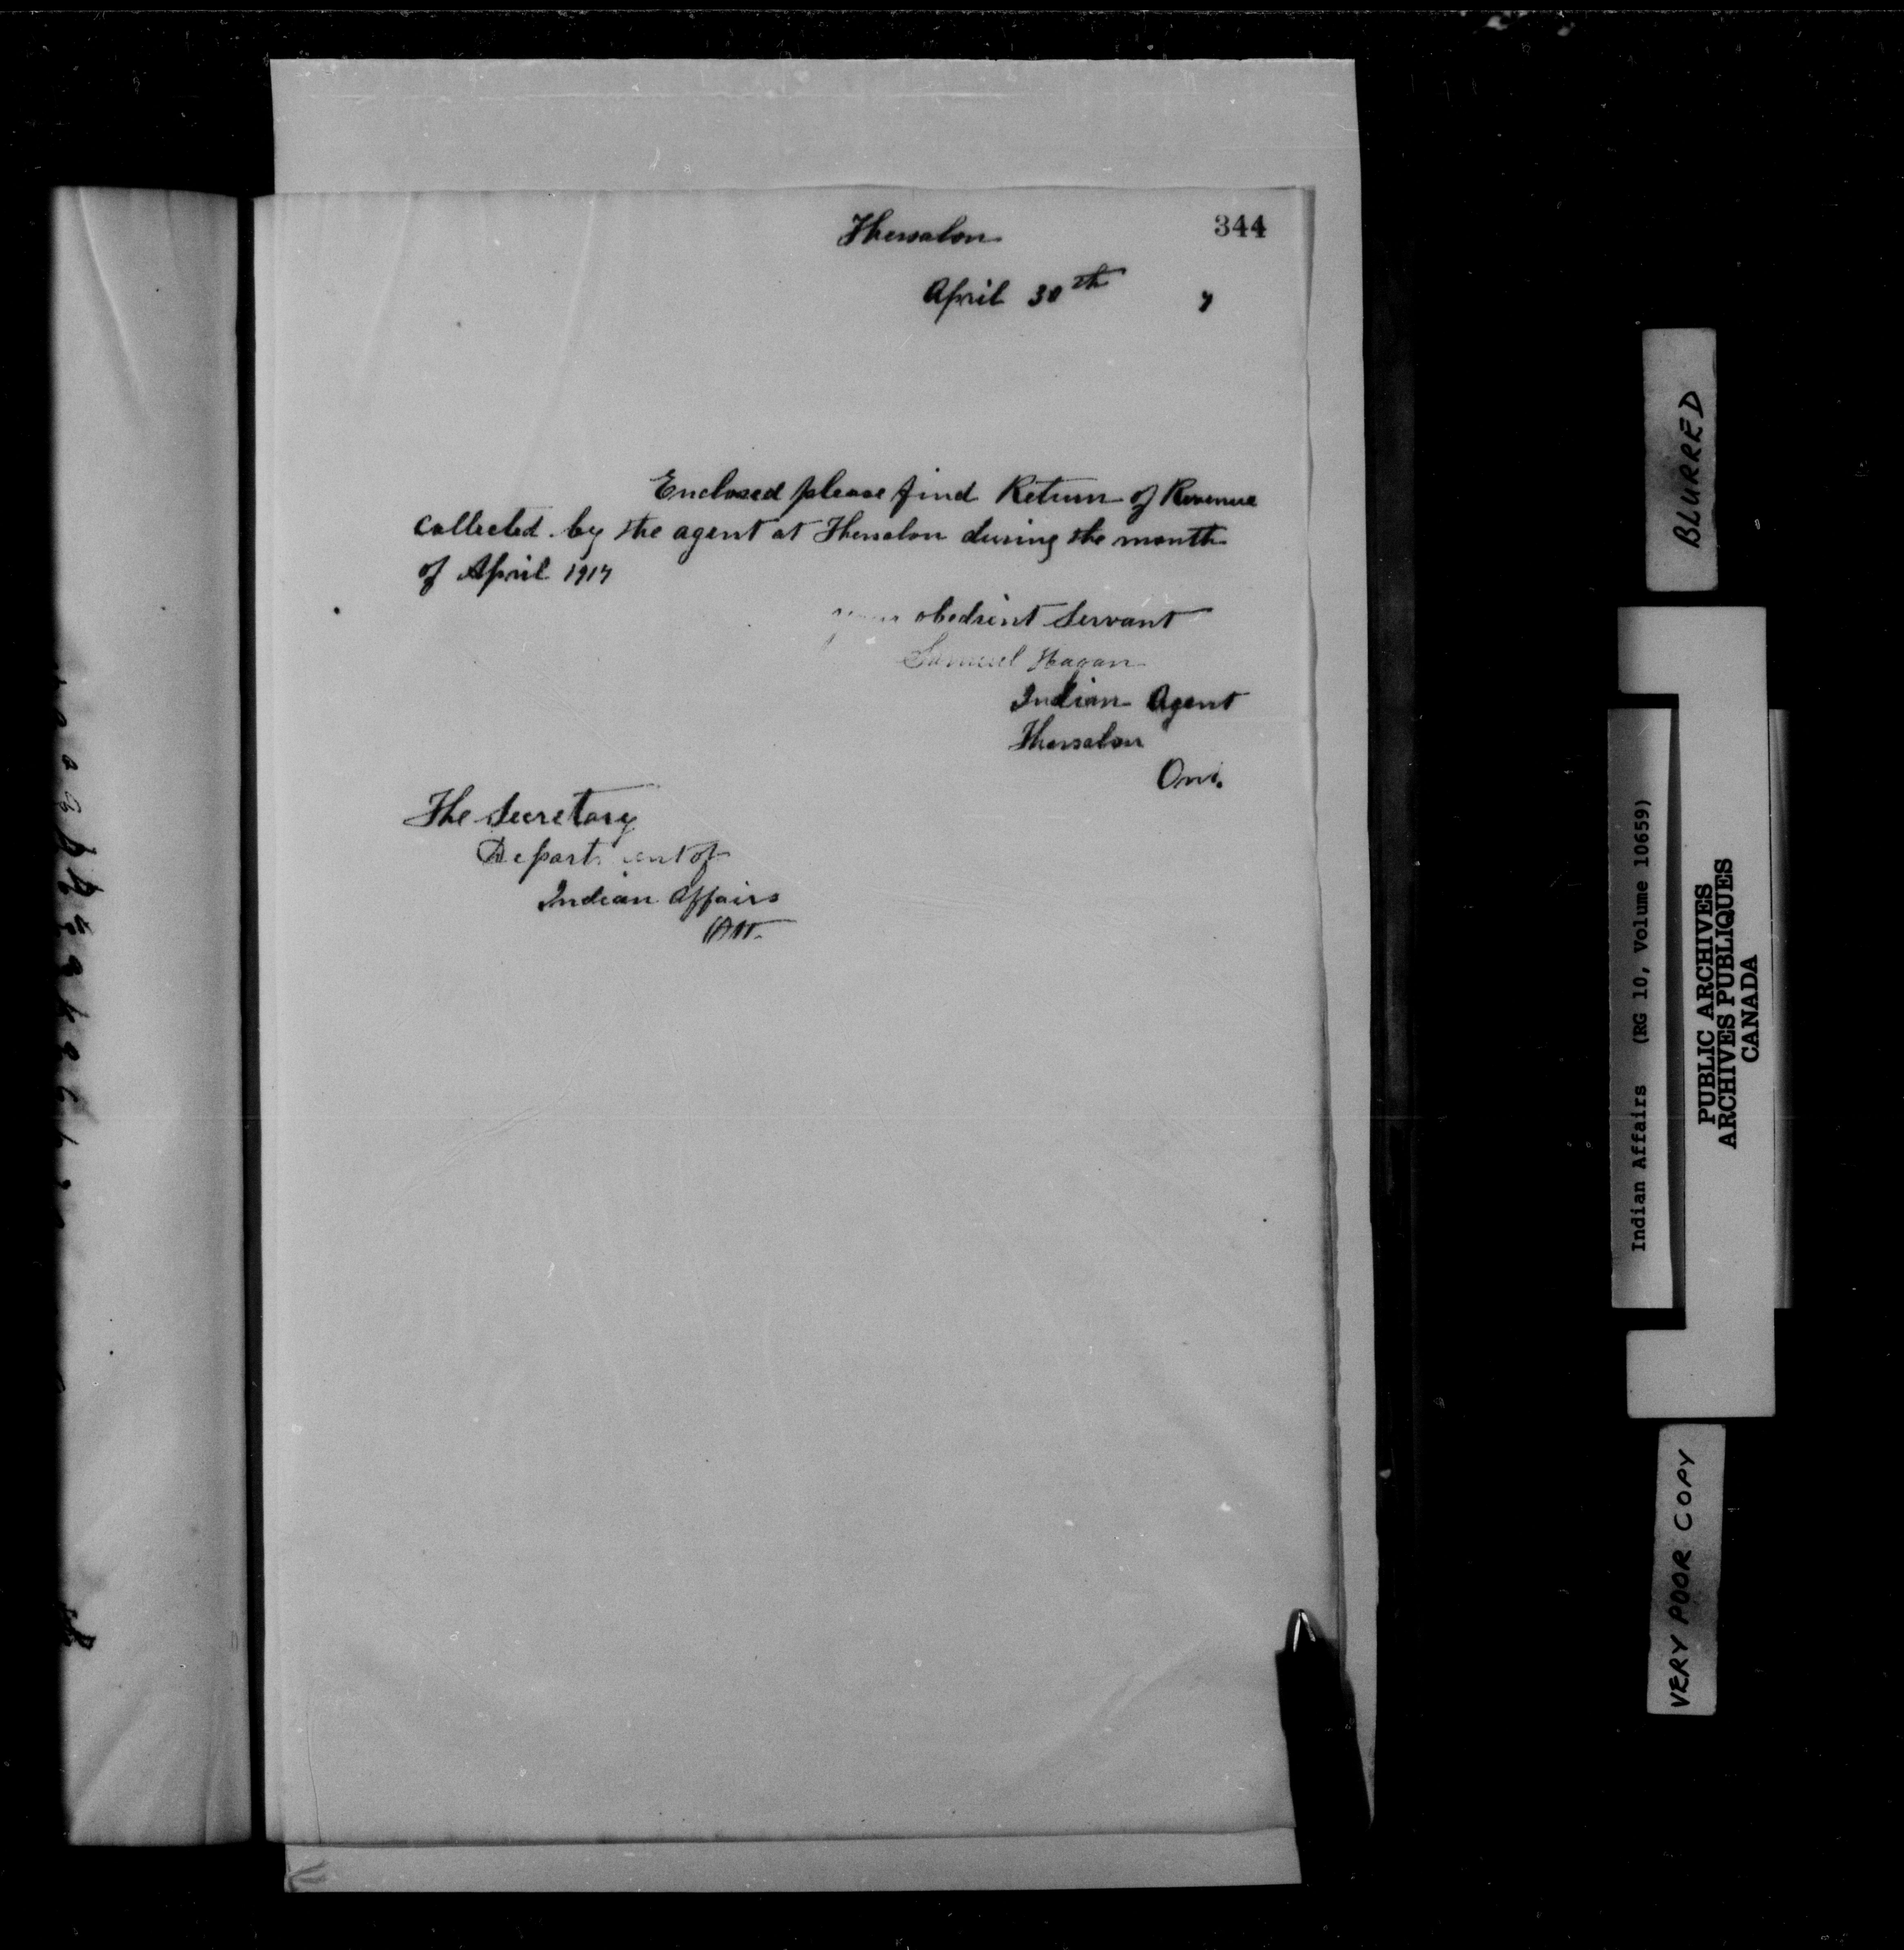 344
Thessalon
April 30th 7
Enclosed please find Return of Revenue
collected by the agent at Thessalon during the month
of April 1917
your obedient Servant
Samuel Hagan
Indian Agent
Thessalon
Ont.
The Secretary
Department of
Indian Affairs
Ott.
BLURRED
Indian Affairs (RG 10, Volume 10659)
PUBLIC ARCHIVES
ARCHIVES PUBLIQUES
CANADA
VERY POOR COPY